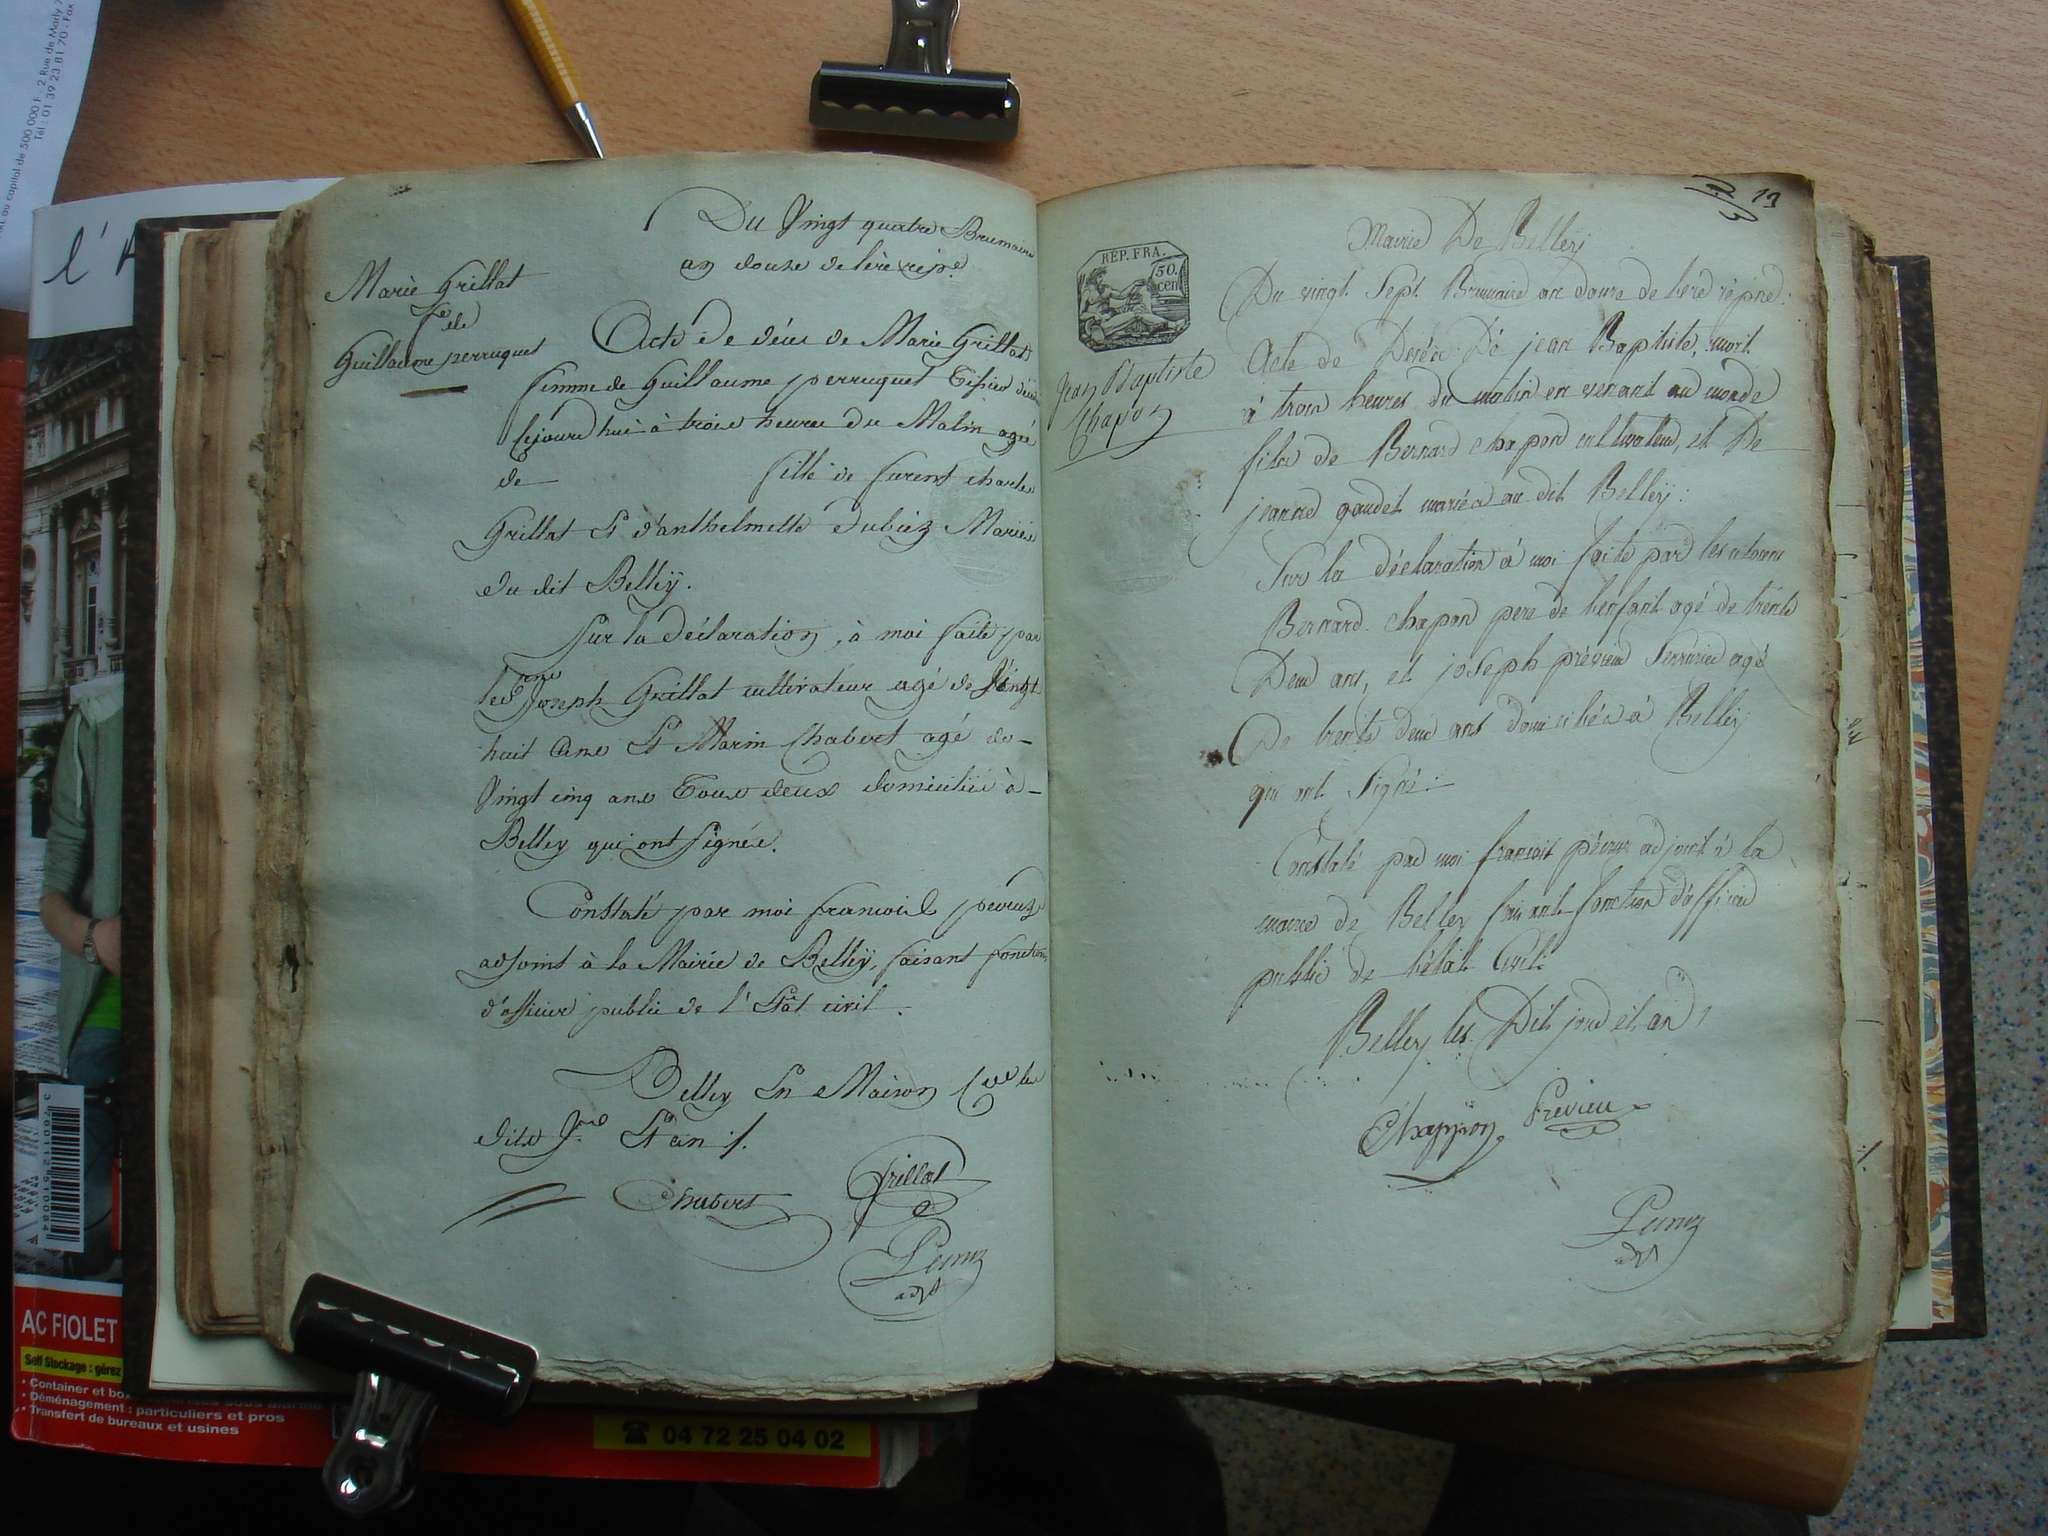 AU capital de 500 000 F - 2, Rue de Marly
Tél : 01 39 23 81 70 - Fax
l'A
Du Vingt quatre Brumaire
an douze de l'ère rép.e
Marie Grillat
f.e de
Guillaume perruquet
Acte de décès de Marie Grillat
femme de Guillaume perruquet Tissier
cejourd'hui à trois heures du Matin agée
de fille de Charles
Grillat Et d'anthelmette dubiez Mariés
du dit Belley.
Sur la déclaration, à moi faite par
les Joseph Grillat cultivateur agé de Vingt
huit Ans Et Marin Chabert agé de
Vingt cinq ans Tous deux domiciliés à
Belley qui ont signés.
Constaté par moi francois peyruz
adjoint à la Mairie de Belley, faisant fonction
d'officier public de l'Etat civil.
Belley En Maison les
dits Jour Et an ./.
Chabert
Grillat
adj
13
REP. FRA.
50.
cen
Jean Baptiste
Chapon
Mairie De Belley
Du vingt Sept Brumaire an douze de l'ere répne:
Acte de Décès De jean Baptiste, mort
à trois heures du matin en venant au monde
fils de Bernard chapon cultivateur, et De
jeanne gaudet mariés au dit Belley:
Sur la déclaration à moi faite par les citoiens
Bernard chapon pere de l'enfant agé de trente
Deux ans, et joseph prévieu Serrurier agé
De trente deux ans domiciliés à Belley
qui ont Signé:
Constaté par moi francois adjoint à la
mairie de Belley faisant fonction d'officier
public de l'état Civil:
Belley les Dit jour et an
Chappon
Prévieu
adj
AC FIOLET
Self Stockage : gérez
• Container et box
• Déménagement : particuliers et pros
• Transfert de bureaux et usines
☎ 04 72 25 04 02